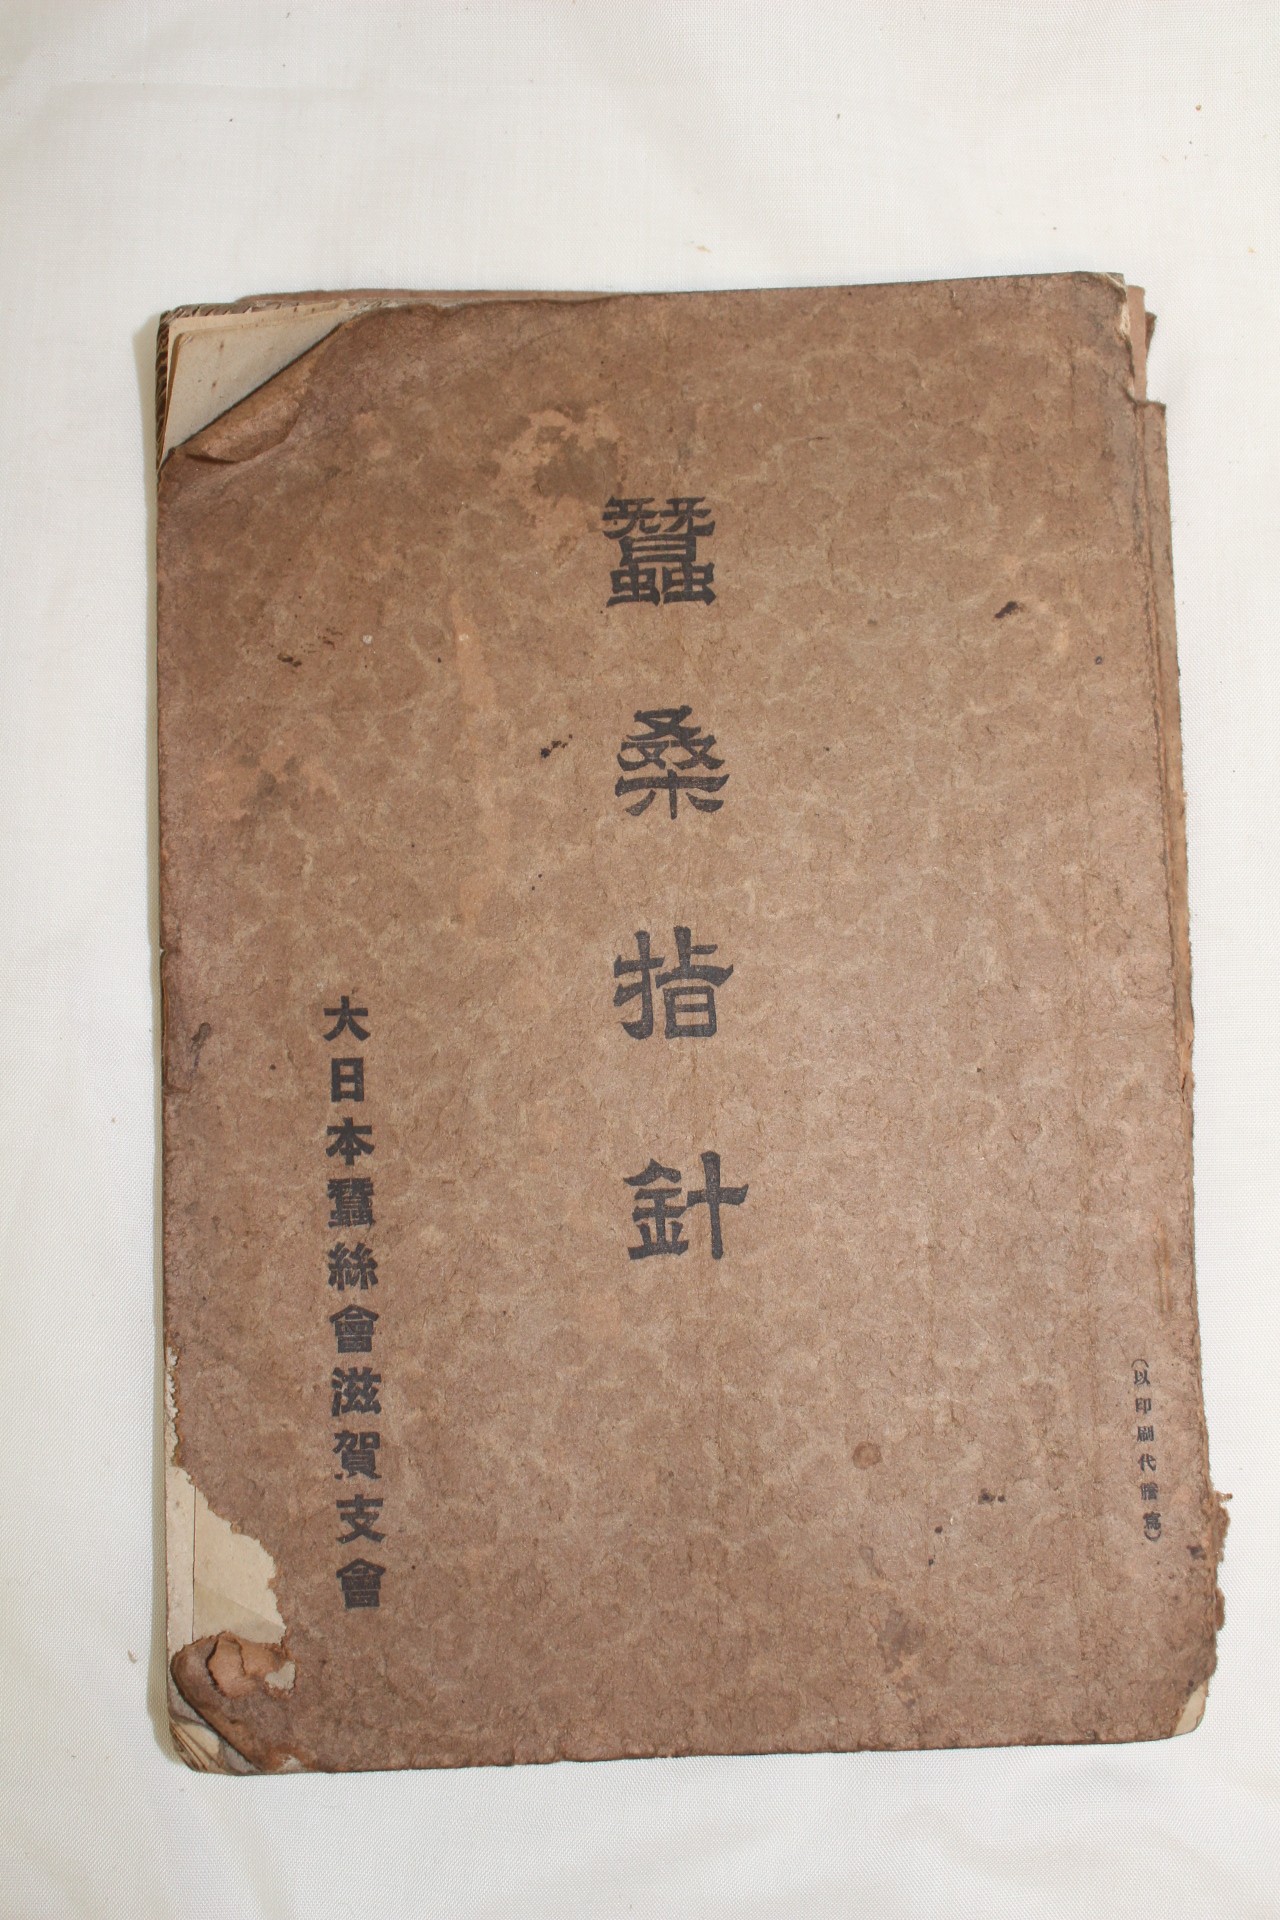 （以印刷代謄寫）
蠶桑指針
大日本蠶絲會滋賀支會